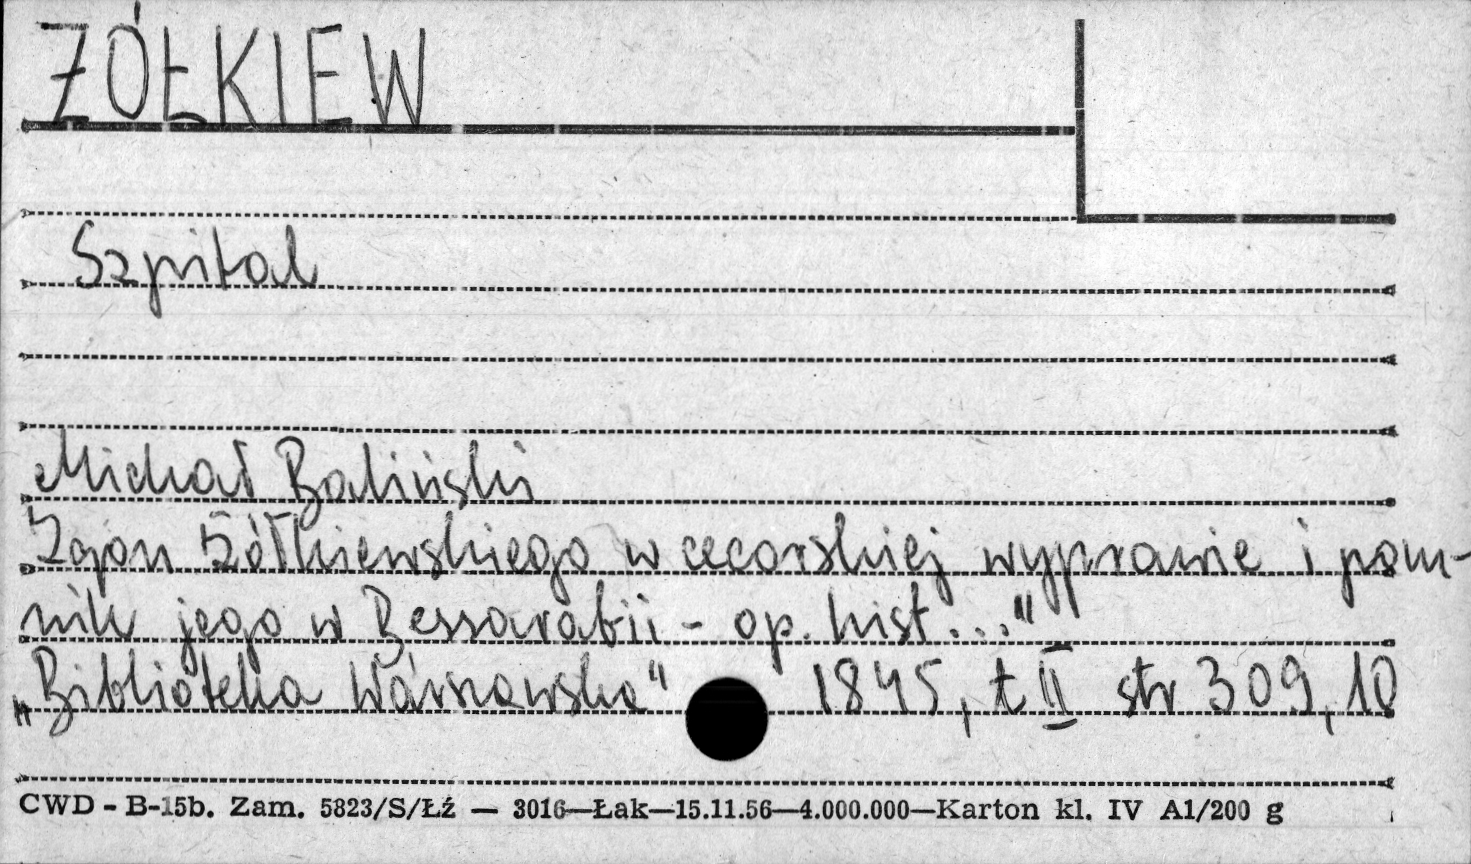 ŻÓŁKIEW
Szpital
Michał Baliński
Zgon Żółkiewskiego w cecorskiej wyprawie i pom-
nik jego w Bessarabii - op. hist..."
„Biblioteka Warszawska" 1845, t II str 309, 10
CWD - B-15b. Zam. 5823/S/Łź — 3016—Łak—15.11.56—4.000.000—Karton kl. IV A1/200 g